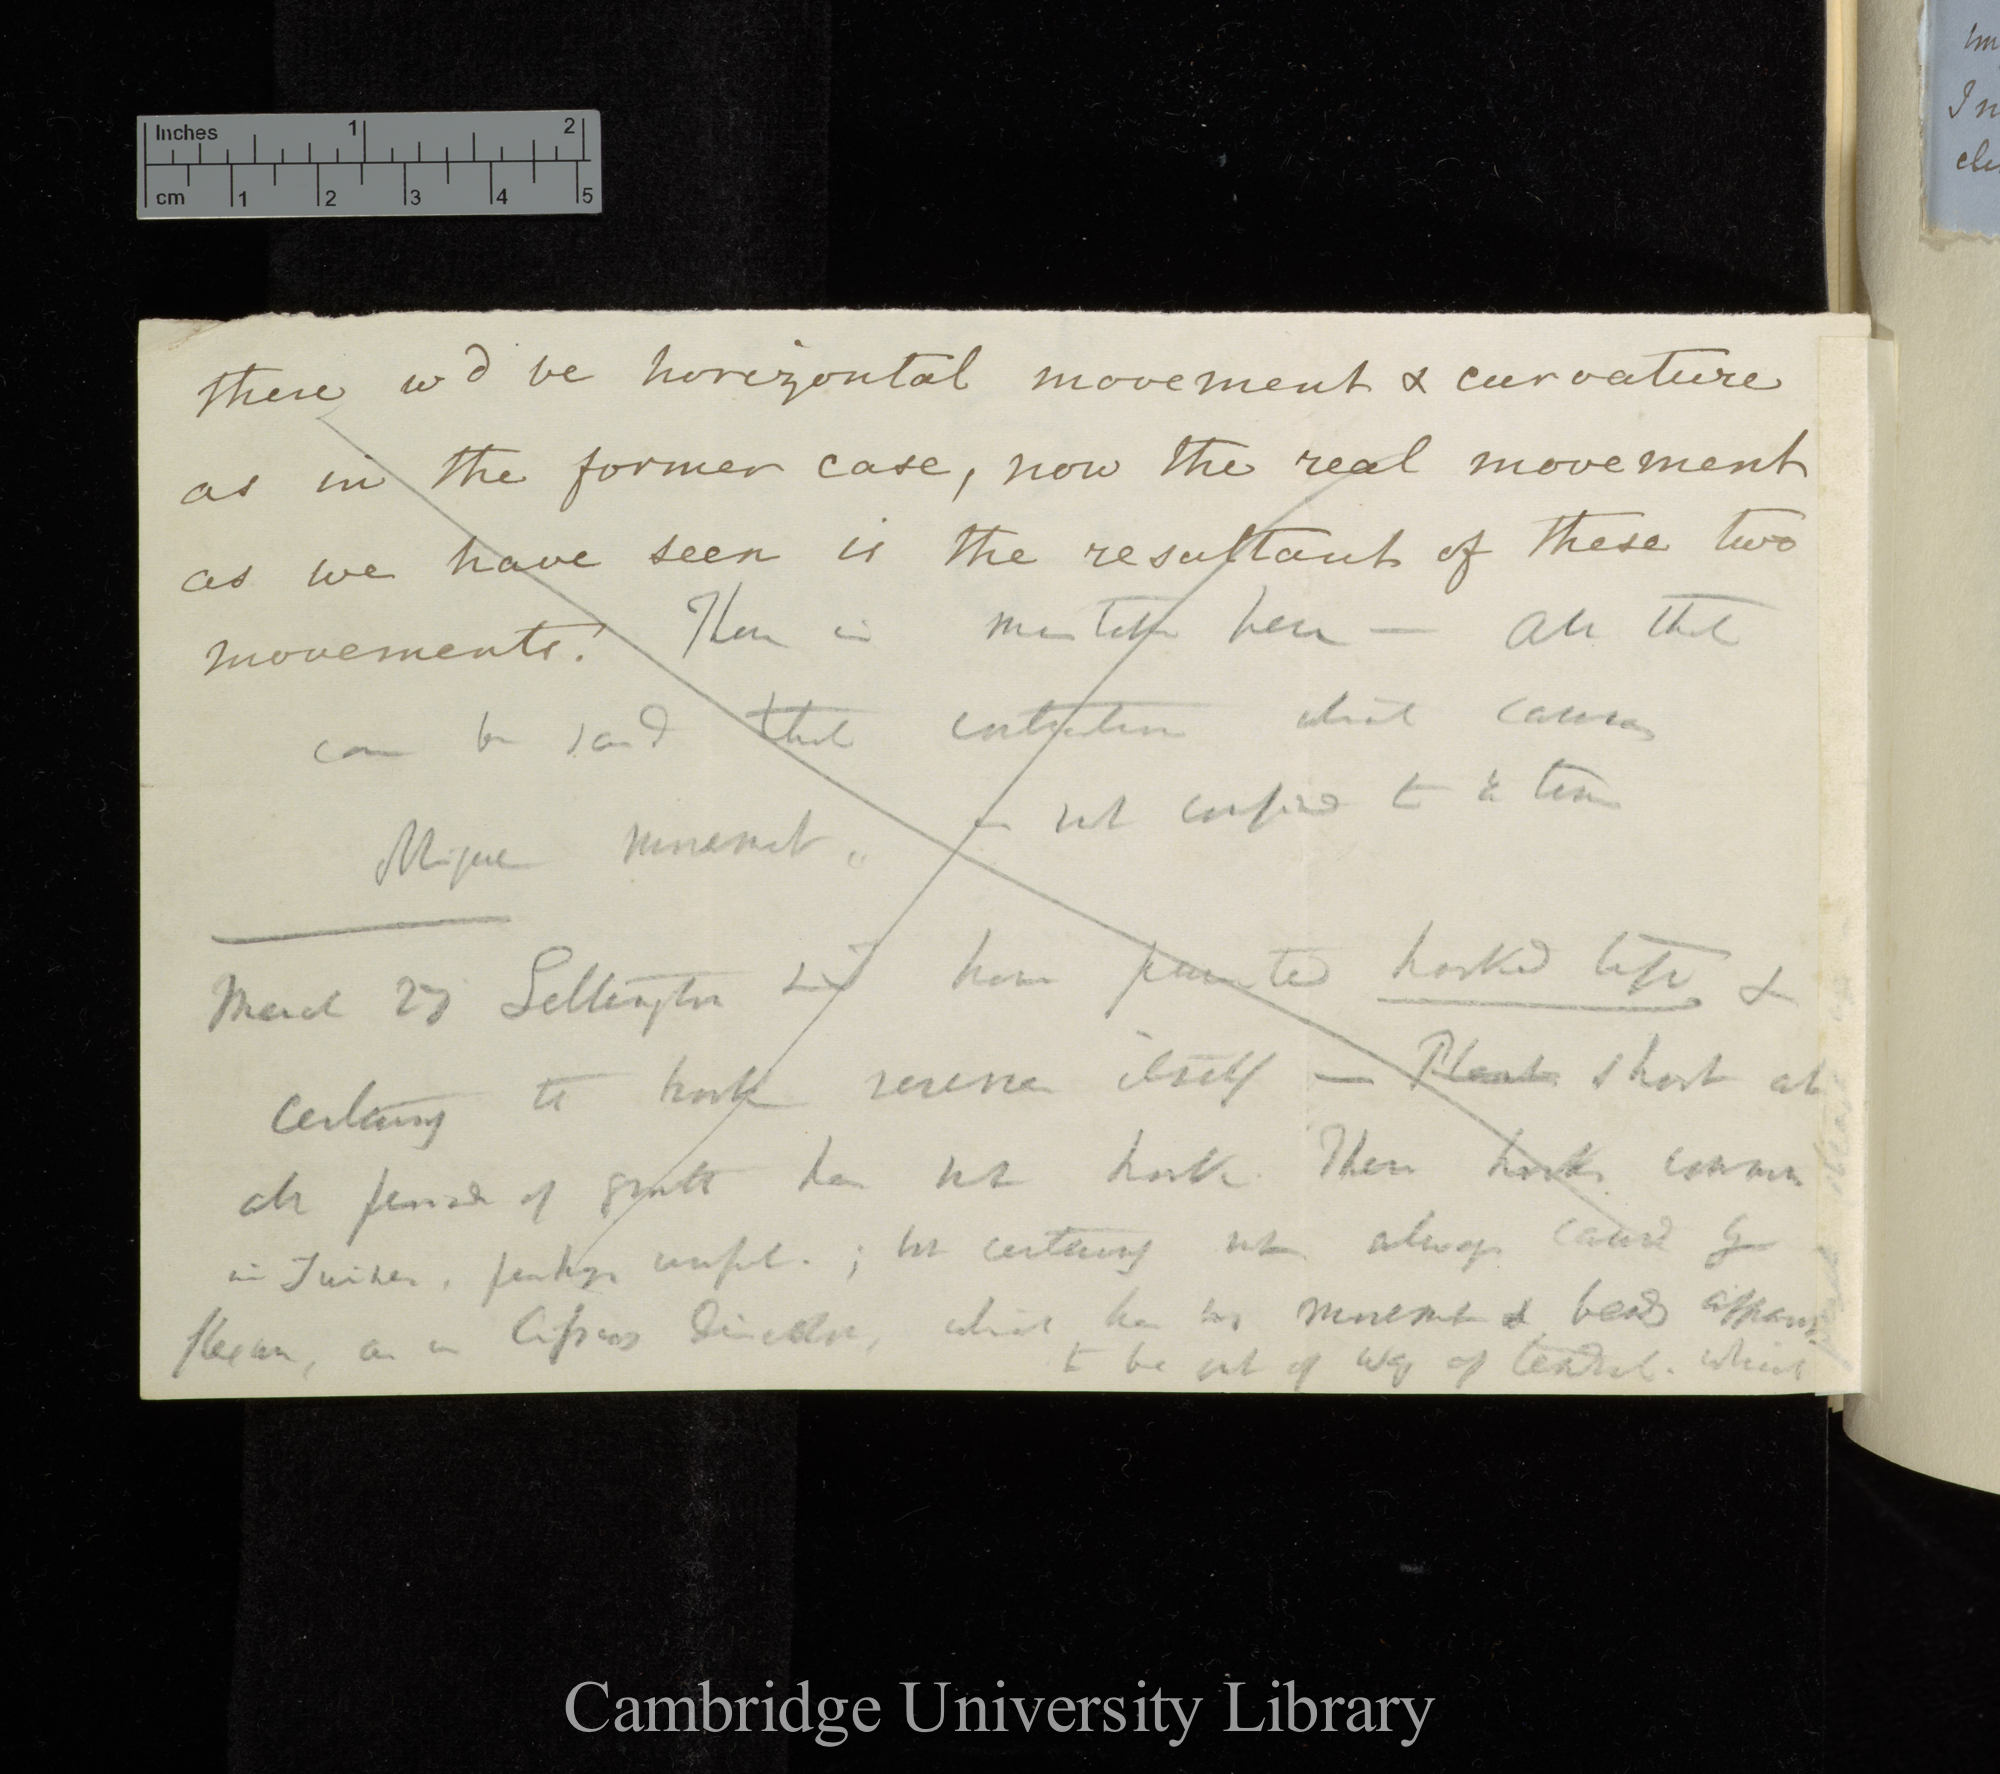 Inches 1 2
cm 1 2 3 4 5
there wd be horizontal movement & curvature
as in the former case, now the real movement
as we have seen is the resultant of these two
movements. There is mistake here — All that
can be said that contraction which causes
movement not confined to
March 23 Lettington has painted hooked tips &
certainly the hook reverses itself — Plant short at
all periods of growth has not hook. These hooks common
in Twiners, perhaps useful. ; but certainly not always caused by
flexure, as in Cissus discolor, which has no movement & bends apparently
to be out of way of tendril. which
In
Cambridge University Library